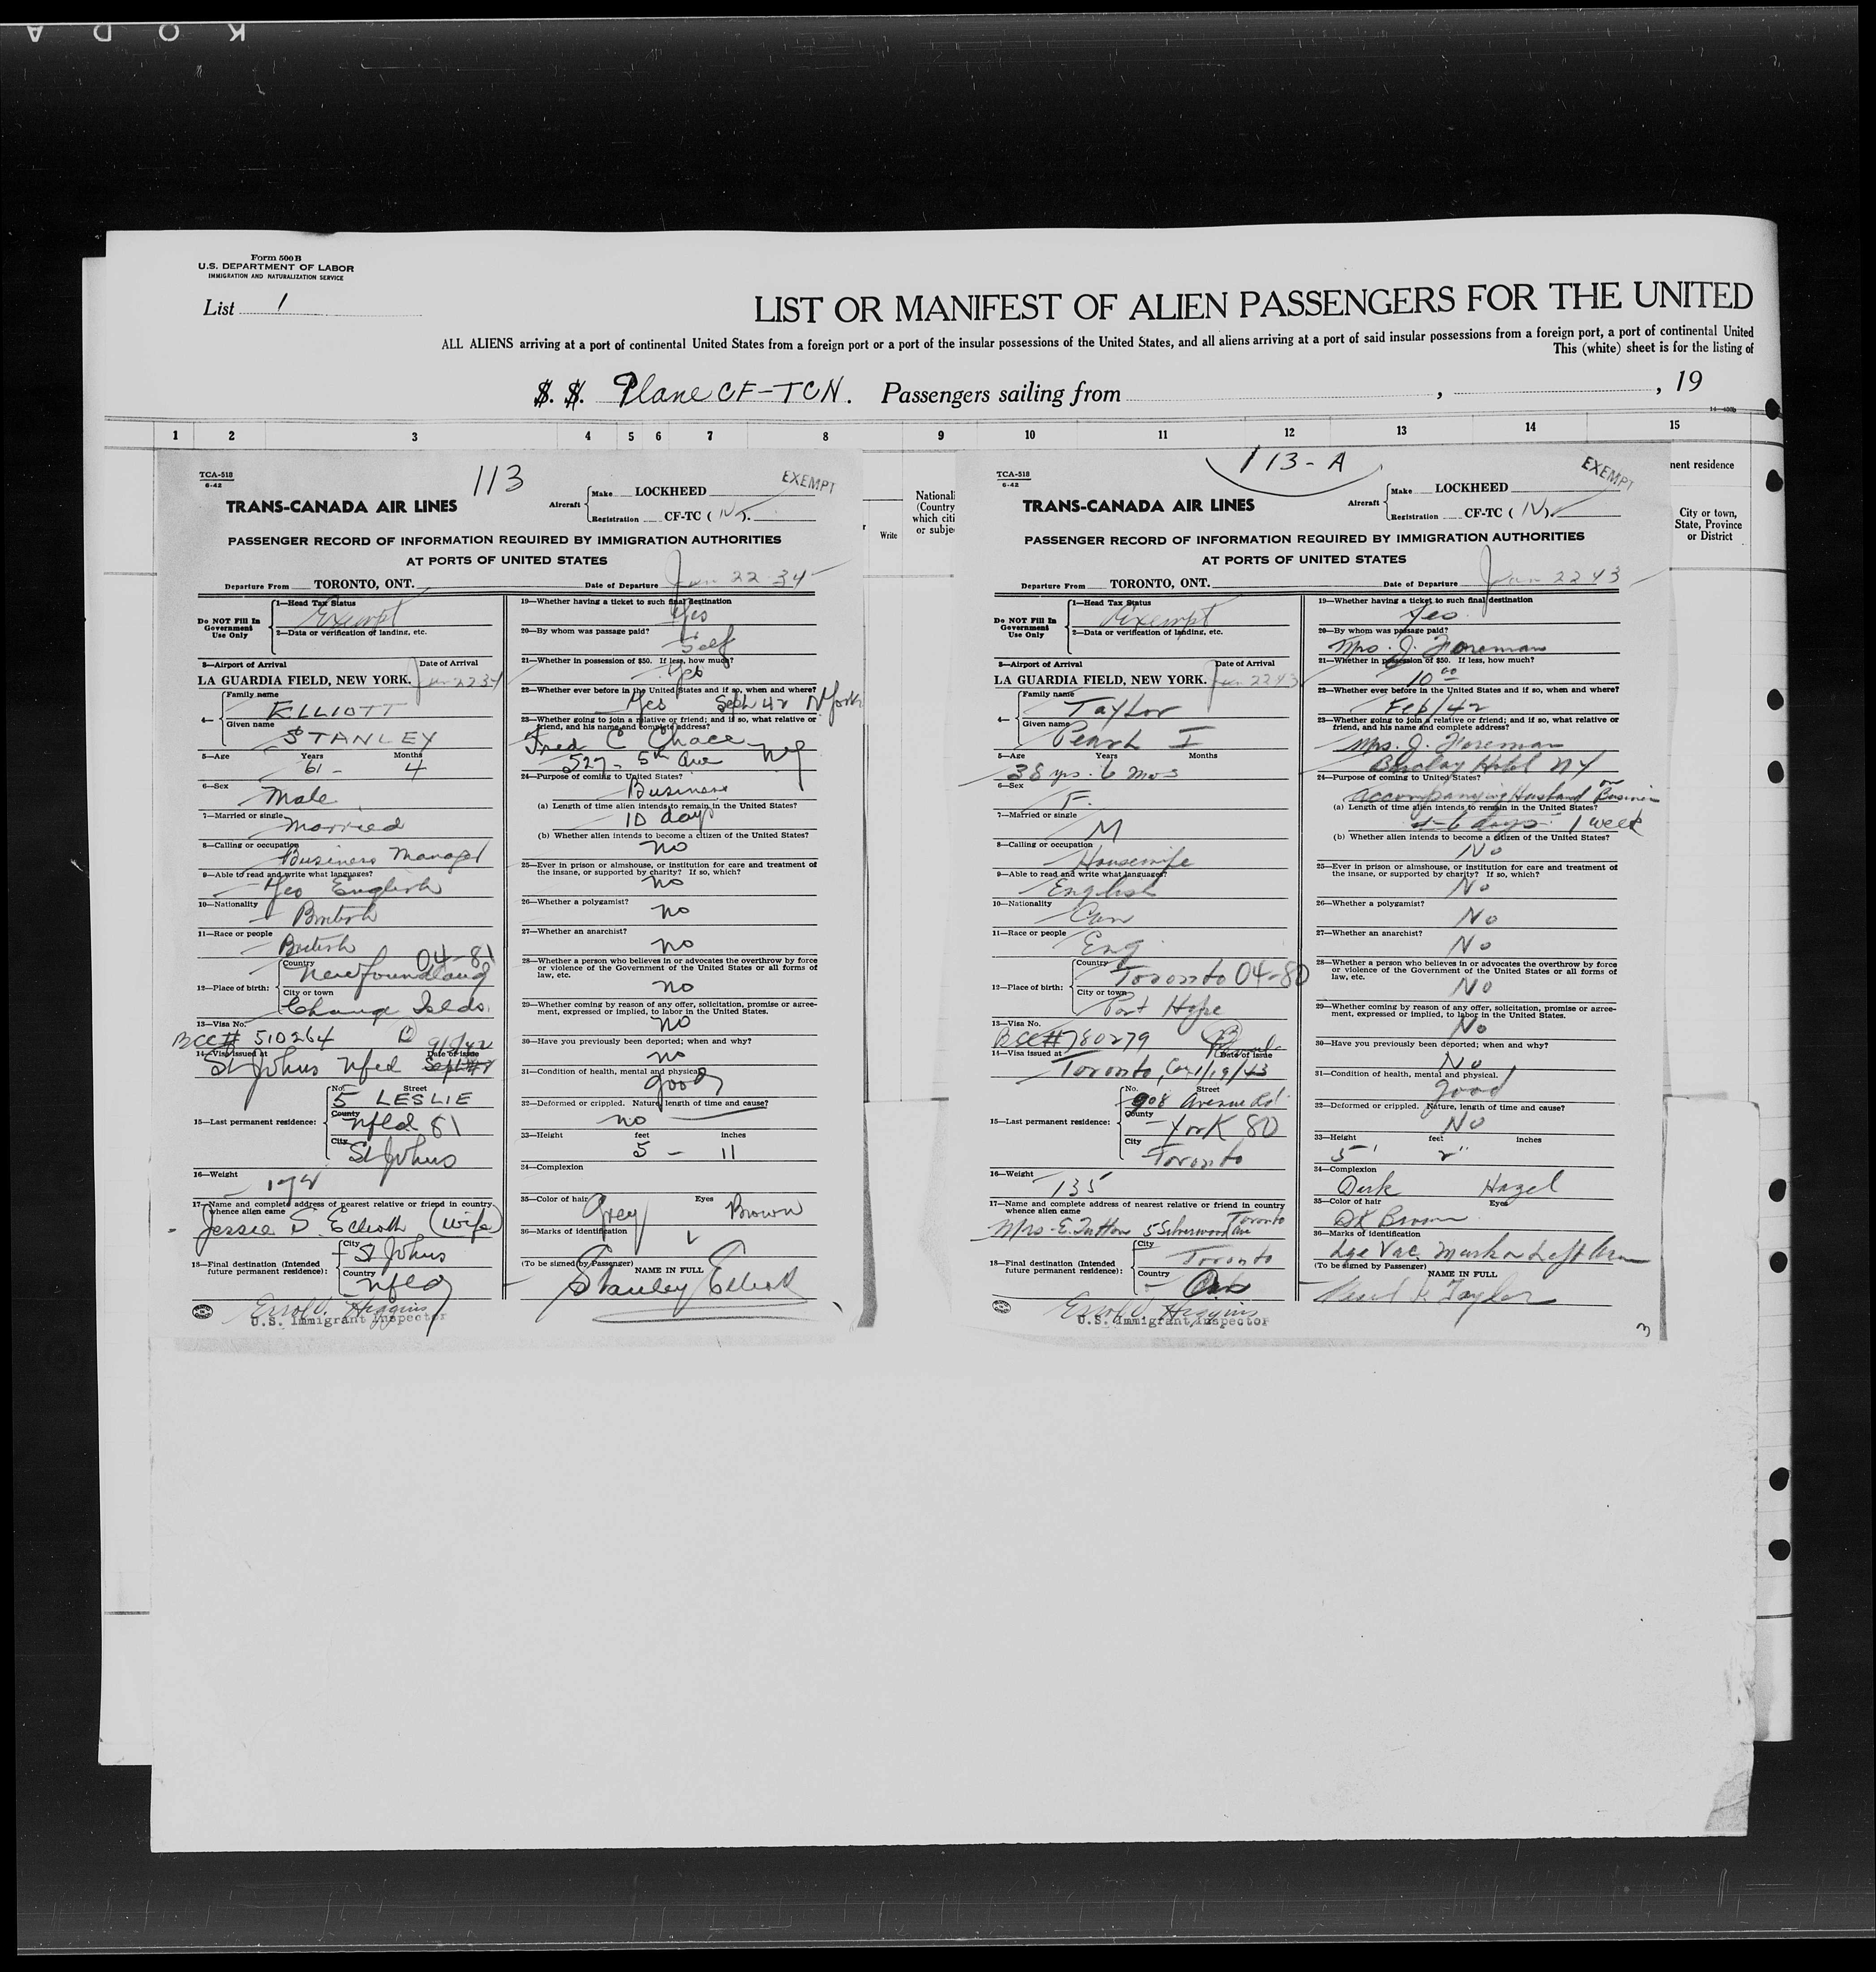 KODA
Form 500 B
U.S. DEPARTMENT OF LABOR
IMMIGRATION AND NATURALIZATION SERVICE
List 1
LIST OR MANIFEST OF ALIEN PASSENGERS FOR THE UNITED
ALL ALIENS arriving at a port of continental United States from a foreign port or a port of the insular possessions of the United States, and all aliens arriving at a port of said insular possessions from a foreign port, a port of continental United
This (white) sheet is for the listing of
S. S. Plane CF-TCN. Passengers sailing from , , 19
1 2 3 4 5 6 7 8 9 10 11 12 13 14 15
TCA-518
6-42
113
EXEMPT
TRANS-CANADA AIR LINES
Aircraft Make LOCKHEED
Registration CF-TC ( N ).
PASSENGER RECORD OF INFORMATION REQUIRED BY IMMIGRATION AUTHORITIES
AT PORTS OF UNITED STATES
Departure From TORONTO, ONT. Date of Departure Jan 22 34
Do NOT Fill In Government Use Only
1—Head Tax Status
Exempt
2—Data or verification of landing, etc.
3—Airport of Arrival Date of Arrival
LA GUARDIA FIELD, NEW YORK. Jan 22 34
4— Family name
ELLIOTT
Given name
STANLEY
5—Age Years Months
61 - 4
6—Sex
Male
7—Married or single
Married
8—Calling or occupation
Business Manager
9—Able to read and write what languages?
Yes English
10—Nationality
British
11—Race or people
British 04-81
12—Place of birth:
Country
Newfoundland
City or town
Change Islds.
13—Visa No.
BCC# 510264
14—Visa issued at Date of issue
St Johns Nfld Sept 9/8/42
15—Last permanent residence:
No. Street
5 LESLIE
County
Nfld 81
City
St Johns
16—Weight
174
17—Name and complete address of nearest relative or friend in country whence alien came
Jessie S. Elliott (wife)
18—Final destination (Intended future permanent residence):
City
St Johns
Country
Nfld
Errol V. Higgins
U.S. Immigrant Inspector
19—Whether having a ticket to such final destination
Yes
20—By whom was passage paid?
Self
21—Whether in possession of $50. If less, how much?
Yes
22—Whether ever before in the United States and if so, when and where?
Yes Sept 42 N York
23—Whether going to join a relative or friend; and if so, what relative or friend, and his name and complete address?
Fred C Chace
527 - 5th Ave NY
24—Purpose of coming to United States?
Business
(a) Length of time alien intends to remain in the United States?
10 days
(b) Whether alien intends to become a citizen of the United States?
no
25—Ever in prison or almshouse, or institution for care and treatment of the insane, or supported by charity? If so, which?
no
26—Whether a polygamist?
no
27—Whether an anarchist?
no
28—Whether a person who believes in or advocates the overthrow by force or violence of the Government of the United States or all forms of law, etc.
no
29—Whether coming by reason of any offer, solicitation, promise or agreement, expressed or implied, to labor in the United States.
no
30—Have you previously been deported; when and why?
no
31—Condition of health, mental and physical.
good
32—Deformed or crippled. Nature, length of time and cause?
no
33—Height feet inches
5 - 11
34—Complexion
35—Color of hair Eyes
Grey Brown
36—Marks of identification
(To be signed by Passenger)
NAME IN FULL
Stanley Elliott
Write
Nationali
(Country
which citi
or subje
TCA-518
6-42
113-A
EXEMPT
TRANS-CANADA AIR LINES
Aircraft Make LOCKHEED
Registration CF-TC ( N ).
PASSENGER RECORD OF INFORMATION REQUIRED BY IMMIGRATION AUTHORITIES
AT PORTS OF UNITED STATES
Departure From TORONTO, ONT. Date of Departure Jan 22 43
Do NOT Fill In Government Use Only
1—Head Tax Status
Exempt
2—Data or verification of landing, etc.
3—Airport of Arrival Date of Arrival
LA GUARDIA FIELD, NEW YORK. Jan 22 43
4— Family name
Taylor
Given name
Pearl I
5—Age Years Months
38 yrs. 6 mos
6—Sex
F.
7—Married or single
M
8—Calling or occupation
Housewife
9—Able to read and write what languages?
English
10—Nationality
Can
11—Race or people
Eng
12—Place of birth:
Country
Toronto 04-80
City or town
Port Hope
13—Visa No.
BCC# 780279
14—Visa issued at Date of issue
Toronto, Can 1/19/43
15—Last permanent residence:
No. Street
908 Avenue Rd
County
York 80
City
Toronto
16—Weight
135
17—Name and complete address of nearest relative or friend in country whence alien came
Mrs. E. Tutton 5 Silverwood Ave Toronto
18—Final destination (Intended future permanent residence):
City
Toronto
Country
Errol V. Higgins
U.S. Immigrant Inspector
19—Whether having a ticket to such final destination
Yes
20—By whom was passage paid?
Mrs. J. Foreman
21—Whether in possession of $50. If less, how much?
10 00
22—Whether ever before in the United States and if so, when and where?
Feb/42
23—Whether going to join a relative or friend; and if so, what relative or friend, and his name and complete address?
Mrs. J. Foreman
Barclay Hotel NY
24—Purpose of coming to United States?
accompanying Husband on Business
(a) Length of time alien intends to remain in the United States?
days 1 week
(b) Whether alien intends to become a citizen of the United States?
No
25—Ever in prison or almshouse, or institution for care and treatment of the insane, or supported by charity? If so, which?
No
26—Whether a polygamist?
No
27—Whether an anarchist?
No
28—Whether a person who believes in or advocates the overthrow by force or violence of the Government of the United States or all forms of law, etc.
No
29—Whether coming by reason of any offer, solicitation, promise or agreement, expressed or implied, to labor in the United States.
No
30—Have you previously been deported; when and why?
No
31—Condition of health, mental and physical.
good
32—Deformed or crippled. Nature, length of time and cause?
No
33—Height feet inches
5' 2"
34—Complexion
Dark Hazel
35—Color of hair Eyes
DK Brown
36—Marks of identification
Lge Vac. Mark on Left Arm
(To be signed by Passenger)
NAME IN FULL
Pearl I. Taylor
3
nent residence
City or town,
State, Province
or District